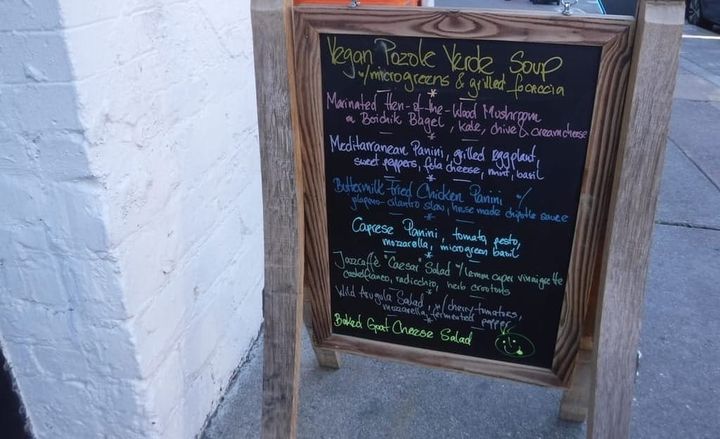 Vegan Pozole Verde Soup
w/microgreens & grilled foccacia
Marinated Hen-of-the-Wood Mushroom
on Boichik Bagel, kale, chive & creamcheese
Mediterranean Panini, grilled eggplant,
sweet peppers, feta cheese, mint, basil
Buttermilk Fried Chicken Panini w/
jalapeno-cilantro slaw, house made chipotle sauce
Caprese Panini, tomato, pesto,
mozzarella, microgreen basil
Jazzcaffè "Caesar" Salad w/lemon caper vinaigrette
castelfranco, radicchio, herb croutons
Wild Arugula Salad, w/cherry-tomatoes,
mozzarella, fermented pepper
Baked Goat Cheese Salad